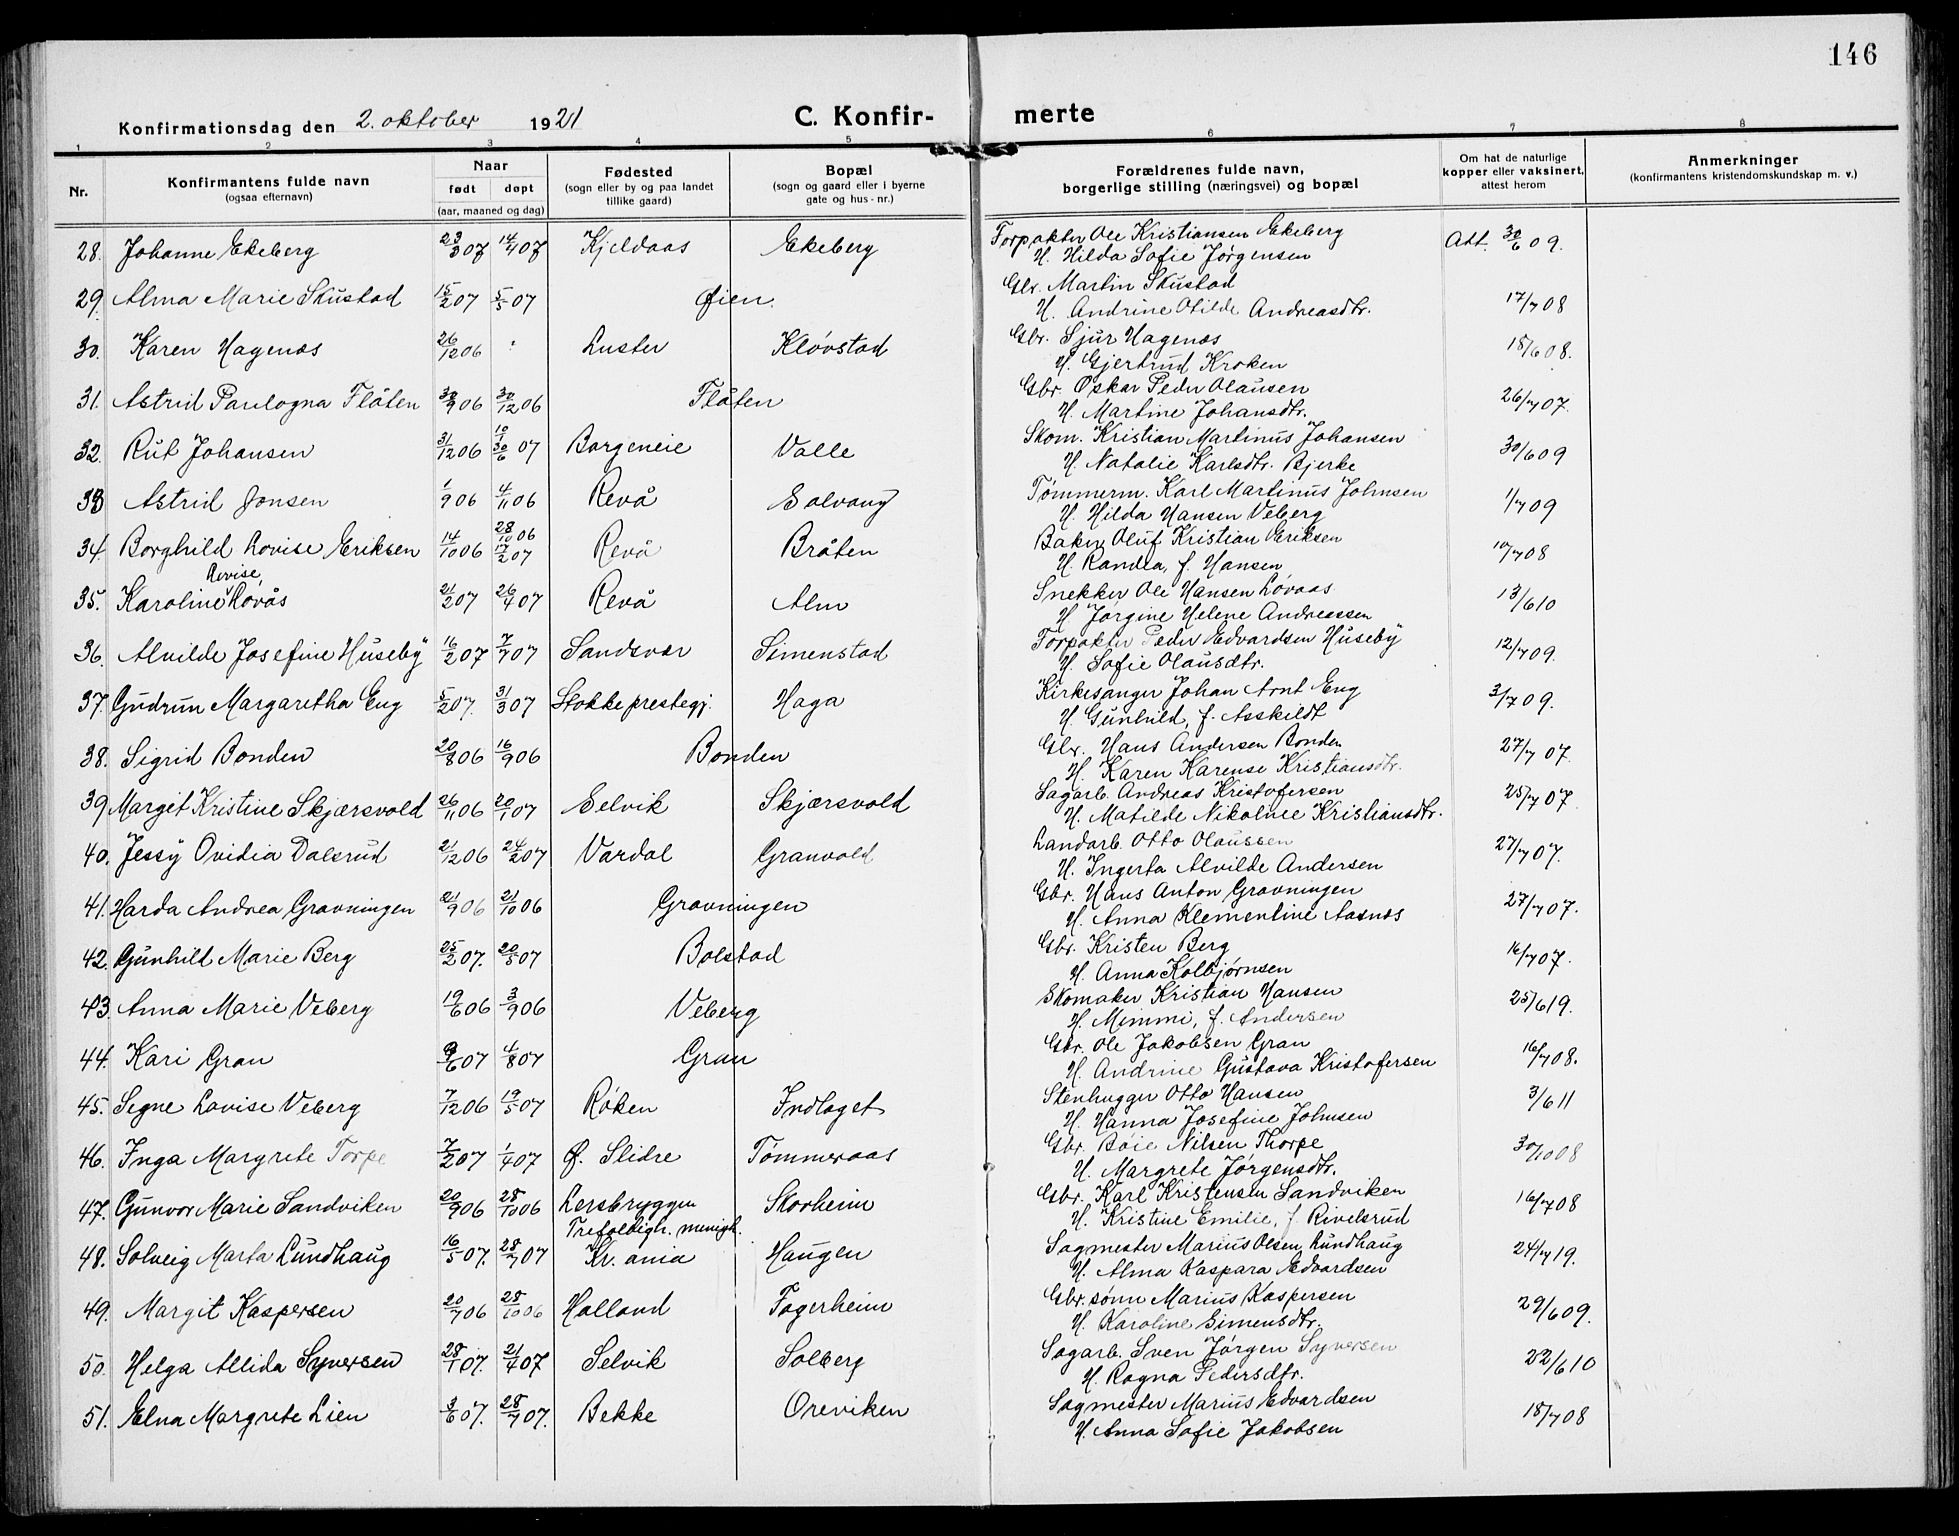 146
Konfirmationsdag den 2. oktober 1921 C. Konfir- merte
1 2 3 4 5 6 7 8
Nr. Konfirmantens fulde navn (ogsaa efternavn) Naar født døpt (aar, maaned og dag) Fødested (sogn eller by og paa landet tillike gaard) Bopæl (sogn og gaard eller i byerne gate og hus-nr.) Forældrenes fulde navn, borgerlige stilling (næringsvei) og bopæl Om hat de naturlige kopper eller vaksinert, attest herom Anmerkninger (konfirmantens kristendomskundskap m. v.)
28. Johanne Ekeberg 23/3 07 14/4 07 Kjeldaas Ekeberg Forpakter Ole Kristiansen Ekeberg Att. 30/6 09.
H. Hilda Sofie Jørgensen
29. Alma Marie Skustad 15/2 07 5/5 07 Øien. Gbr. Martin Skustad 17/7 08
H. Andrine Otilde Andreasdtr.
30. Karen Hagenæs 26/12 06 Luster Kløvstad Gbr. Sjur Hagenæs 18/6 08.
H. Gjertrud Kroken
31. Astrid Paulogna Flåten 30/9 06 30/12 06 Flåten Gbr. Oskar Peder Olausen 26/7 07.
H. Martine Johansdtr.
32. Rut Johansen 31/12 06 10/1 30/6 07 Borgeneie Valle Skom. Kristian Martinus Johansen 30/6 09
H. Natalie Karlsdtr. Bjerke
33 Astrid Jonsen 1/9 06 4/11 06 Revå Solvang Tømmerm. Karl Martinus Johnsen 1/7 09
H. Hilda Hansen Veberg
34. Borghild Lovise Eriksen 14/10 06 28/10 06 17/2 07 Revå Bråten Baker Oluf Kristian Eriksen 10/7 08
H. Randea, f. Hansen
35. Karoline Lovise Lovås 21/2 07 26/4 07 Revå Alm Snekker Ole Hansen Lovaas 13/6 10
H. Jørgine Helene Andreassen
36. Alvilde Josefine Huseby 16/2 07 7/7 07 Sandsvær Simenstad Forpakter Peder Edvardsen Huseby 12/7 09.
H. Sofie Olausdtr.
37. Gudrun Margaretha Eng 5/2 07. 31/3 07 Stokke prestegj. Haga Kirkesanger Johan Arnt Eng 3/7 09.
H. Gunhild, f. Asskildt
38. Sigrid Bonden 20/8 06 16/9 06 Bonden Gbr. Hans Andersen Bonden 27/7 07.
H. Karen Karense Kristiansdtr.
39 Margit Kristine Skjærsvold 26/11 06 20/1 07 Selvik Skjærsvold Sagarb. Andreas Kristofersen 25/7 07
H. Matilde Nikoline Kristiansdtr.
40. Jessy Ovidia Dalsrud 21/12 06 24/2 07 Vardal Granvold Landarb. Otto Olaussen 27/7 07.
H. Ingerta Alvilde Andersen
41. Harda Andrea Gravningen 21/9 06 21/10 06 Gravningen Gbr. Hans Anton Gravningen 27/7 07.
H. Anna Klementine Aasnæs
42. Gunhild Marie Berg 25/2 07. 20/5 07 Bolstad Gbr. Kristen Berg 16/7 07.
H. Anna Kolbjørnsen
43. Anna Marie Veberg 19/6 06 3/9 06 Veberg Skomaker Kristian Hansen 25/6 19.
H. Mimmi, f. Andersen
44. Kari Gran 9/6 07 4/8 07 Gran Gbr. Ole Jakobsen Gran 16/7 08.
H. Andrine Gustava Kristofersen
45. Segne Lovise Veberg 7/12 06 19/5 07 Røken Indlaget Stenhugger Otto Hansen 3/6 11
H. Hanna Josefine Johnsen
46. Inga Margrete Torpe 7/2 07 1/4 07 Ø. Slidre Tømmeraas Gbr. Bøie Nilsen Thorpe 30/10 08
H. Margrete Jørgensdtr.
47. Gunvor Marie Sandviken 20/9 06 28/10 06 Lersbryggen Skorheim Gbr. Karl Kristensen Sandviken 16/7 08
H. Kristine Emilie, f Rivelsrud
48. Solveig Marta Lundhaug 16/5 07. 28/7 07 Trefoldigh. menigh. Kr.ania Haugen Sagmester Marius Olsen Lundhaug 24/7 19.
H. Alma Kaspara Edvardsen
49. Margit Kaspersen 20/7 06 28/10 06 Halland Fagerheim Gbr.sønn Marius Kaspersen 29/6 09.
H. Karoline Simensdtr.
50. Helga Allida Syversen 28/1 07. 21/4 07 Selvik Solberg Sagarb. Sven Jørgen Syversen 22/6 10
H. Ragna Pedersdtr.
51. Elna Margrete Lien 3/6 07. 28/7 07. Bekke Oreviken Sagmester Marius Edvardsen 18/7 08
H. Anna Sofie Jakobsen